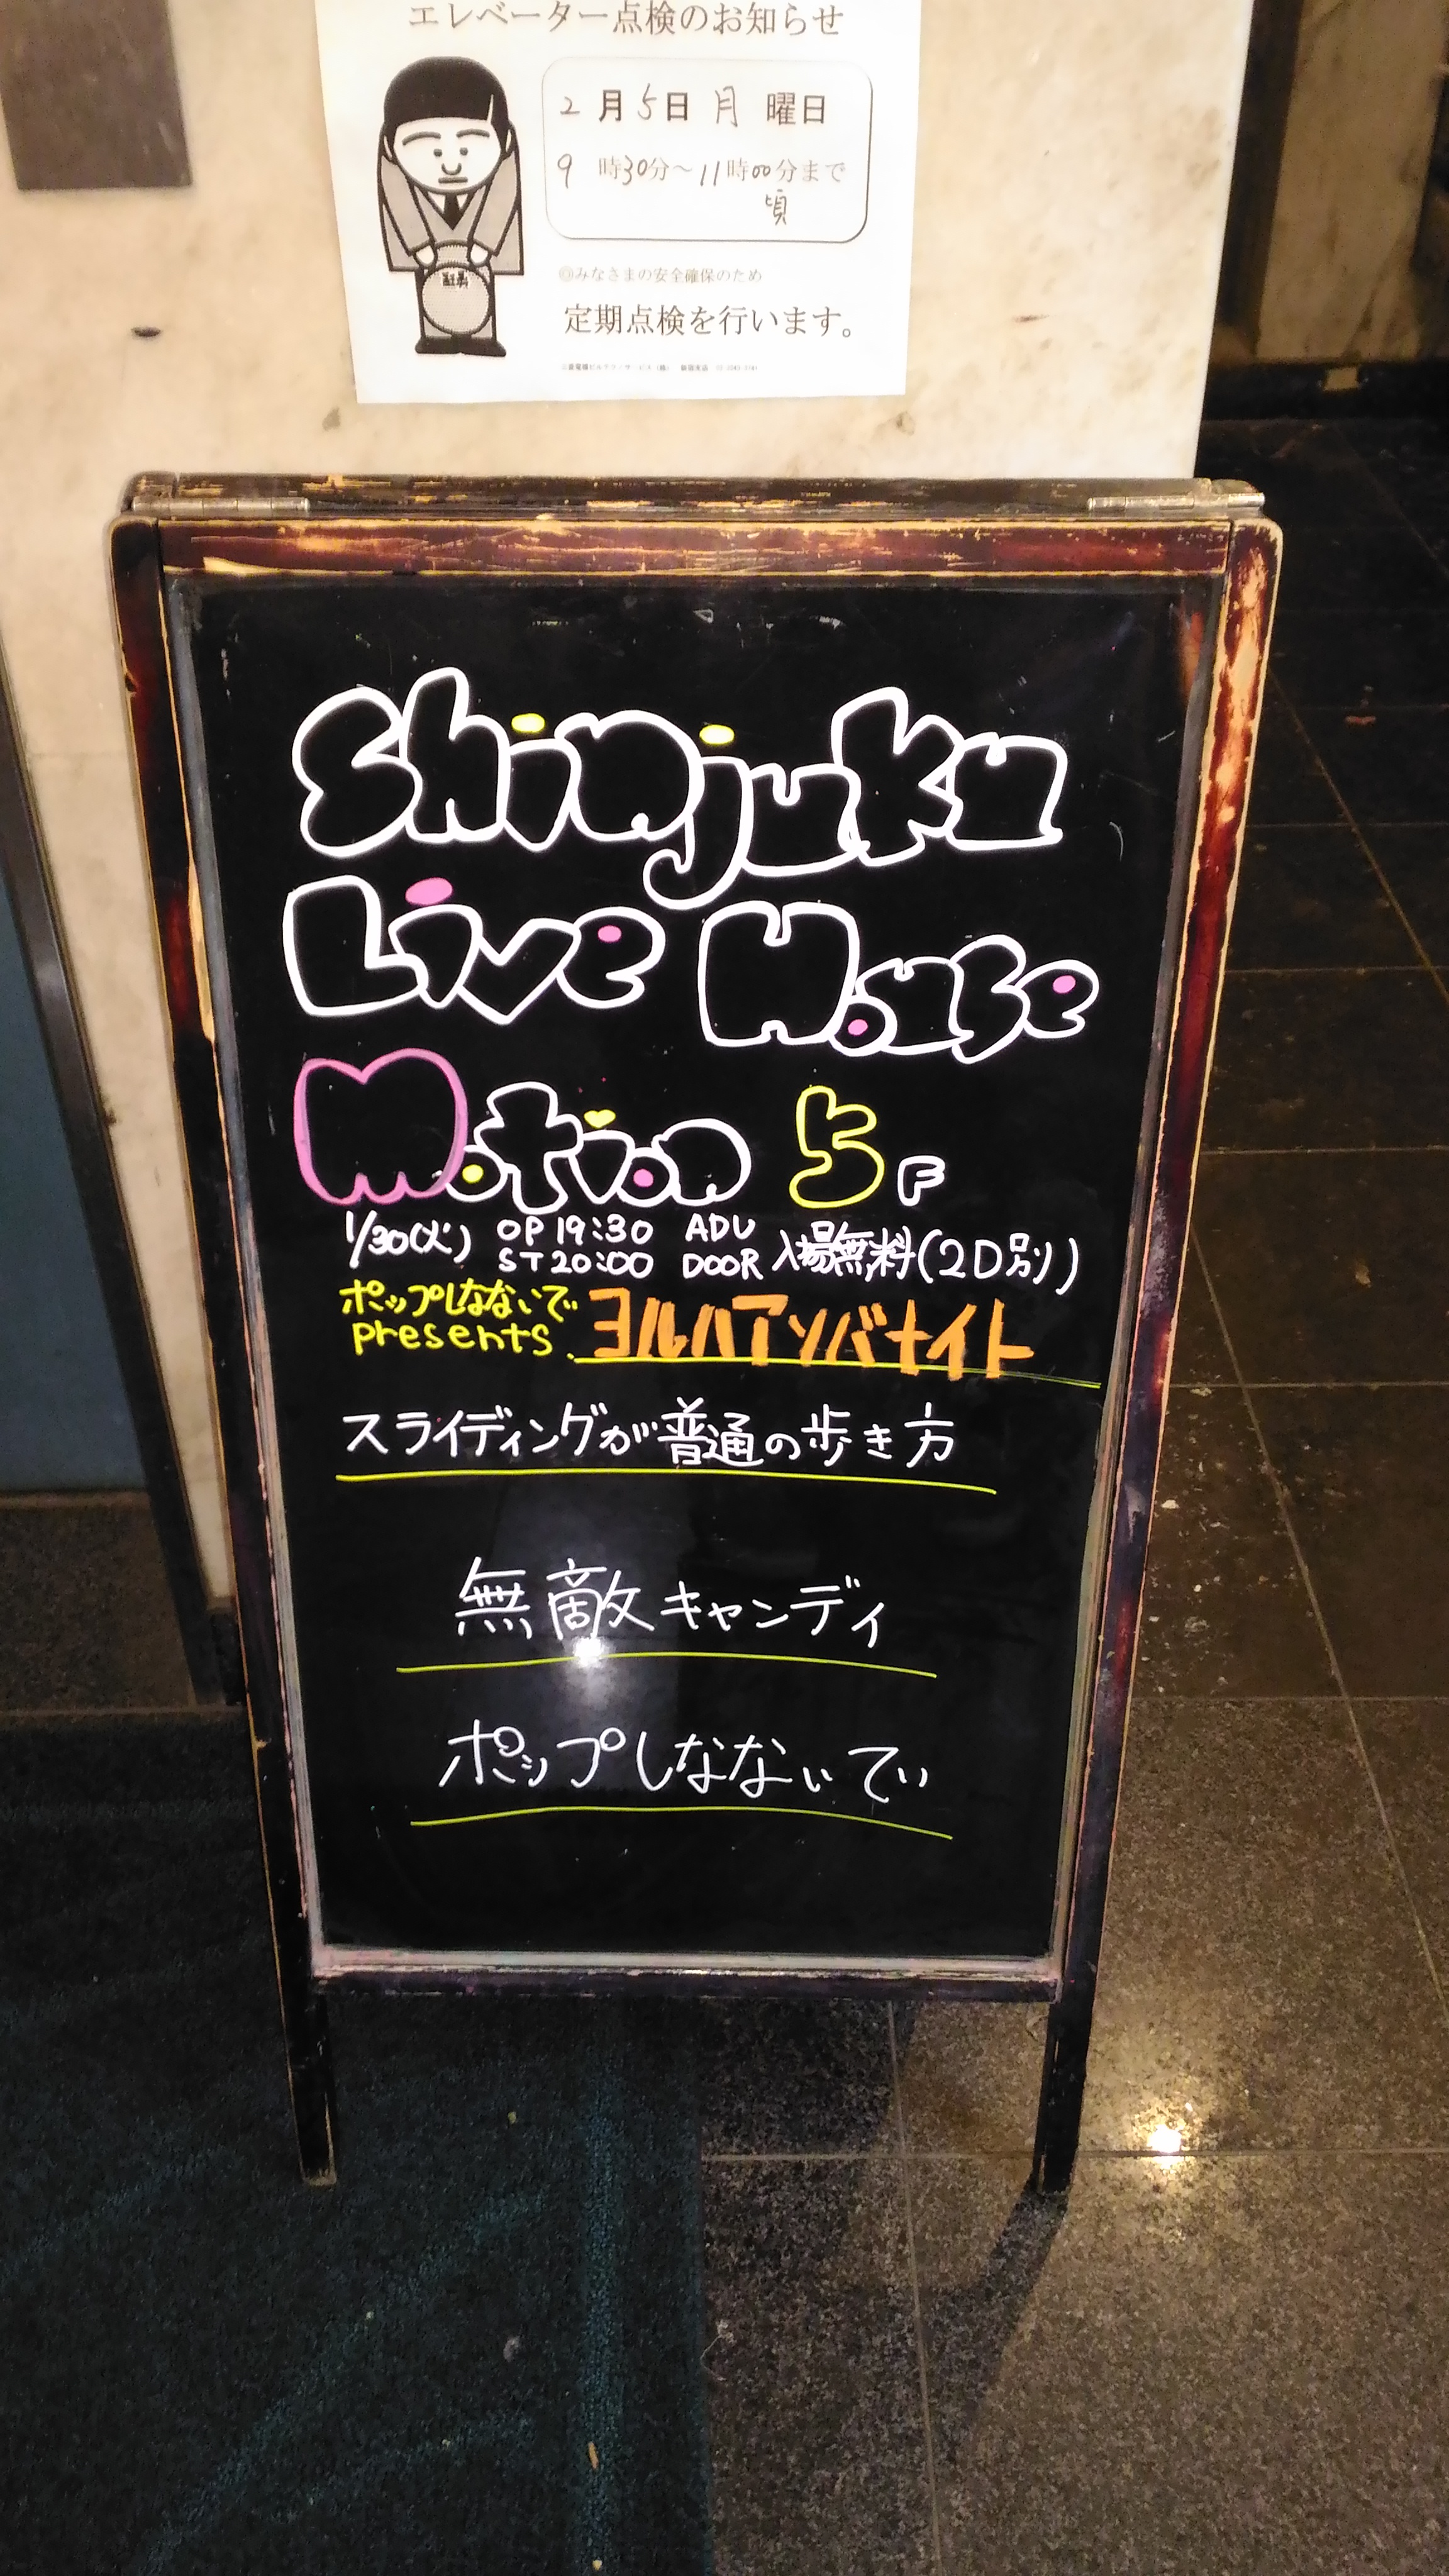 エレベーター点検のお知らせ
2月5日 月 曜日
9 時30分～11時00分まで
頃
◎みなさまの安全確保のため
定期点検を行います。
Shinjuku
Live House
Motion 5F
1/30(火) OP 19:30 ADV 入場無料(2D別)
ST 20:00 DOOR
ポップしなないで ヨルハアソバナイト
presents.
スライディングが普通の歩き方
無敵キャンディ
ポップしなないで